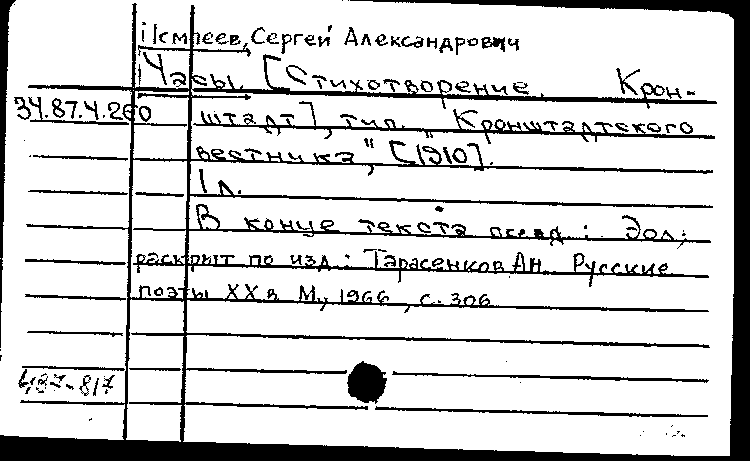 Сергей Александрович
Часы. [Стихотворение. Крон-
34.87.4.260 штадт], тип. "Кронштадтского
вестника", [1910].
1 л.
В конце текста псевд: Дол;
раскрыт по изд.: Тарасенков Ан. Русские
поэты XX в М., 1966, с. 306
487-817